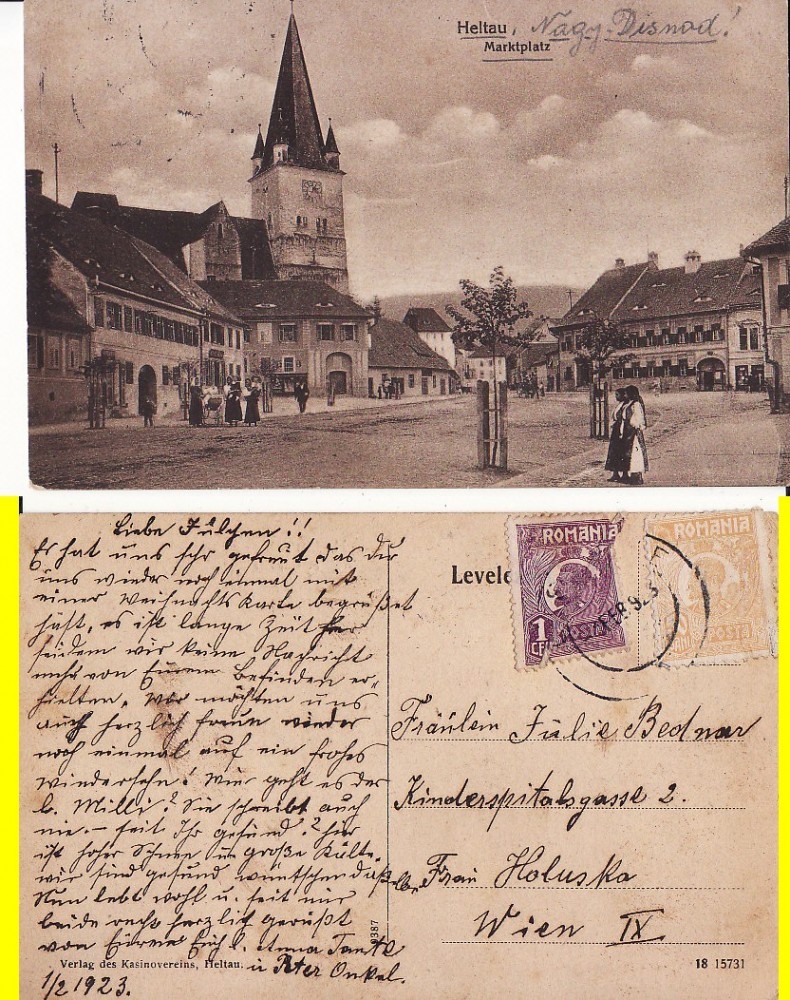 Heltau, Nagy-Disnod!
Marktplatz
Liebe Jülchen!!
Es hat uns sehr gefreut das du
uns wieder noch einmal mit
einer Weihnachts Karte begrüßet
hast, es ist lange Zeit her
seidem wir keine Nachricht
mehr von Eurem Befinden er-
hielten. Wir möchten uns
auch herzlich freun wieder
noch einmal auf ein frohes
wiedersehn! Wie geht es der
l. Milli? Sie schreibt auch
nie. – seit Ihr gesund? hier
ist hoher Schnee u. große Kälte.
wir sind gesund wüntschen daß
Nun lebt wohl u. seit mir
beide recht herzlich gerüßt
von Eurere Euch l. Anna Tante
u Peter Onkel.
1/2 1923.
Verlag des Kasinovereins, Heltau.
ROMANIA
1
POSTA
ROMANIA
POSTA
FEB 923
Fräulein Jülie Bednar
Kinderspitalsgasse 2.
Frau Holuska
Wien IX
18 15731